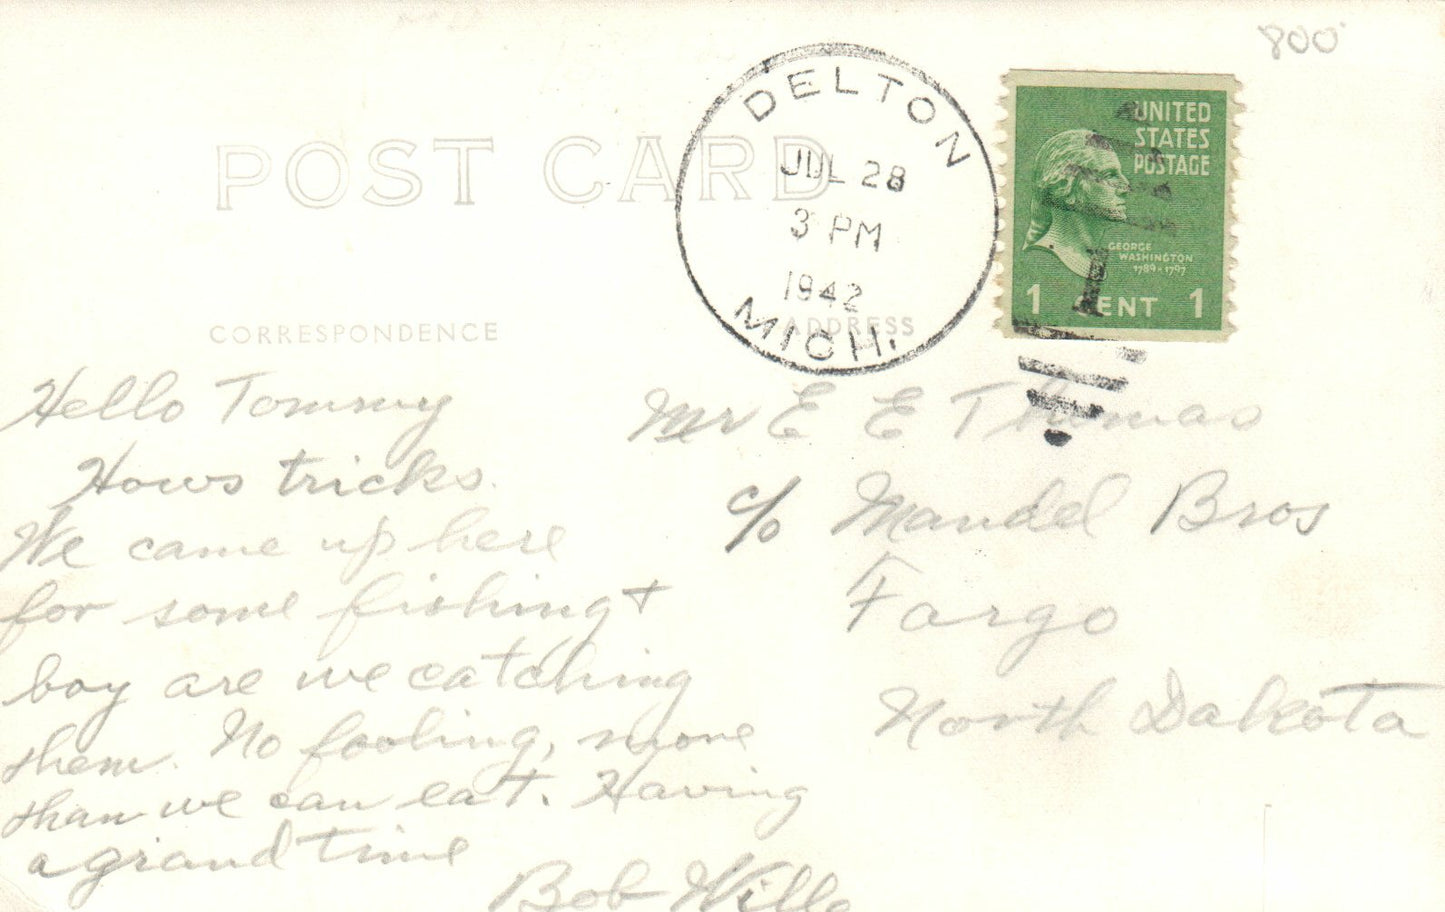 800
POST CARD
DELTON
JUL 28
3 PM
1942
MICH.
UNITED
STATES
POSTAGE
GEORGE
WASHINGTON
1789-1797
1 CENT 1
CORRESPONDENCE
ADDRESS
Hello Tommy
Hows tricks.
We came up here
for some fishing +
boy are we catching
them. No fooling, more
than we can eat. Having
a grand time
Bob Wille
Mr E E Thomas
c/o Mandel Bros
Fargo
North Dakota